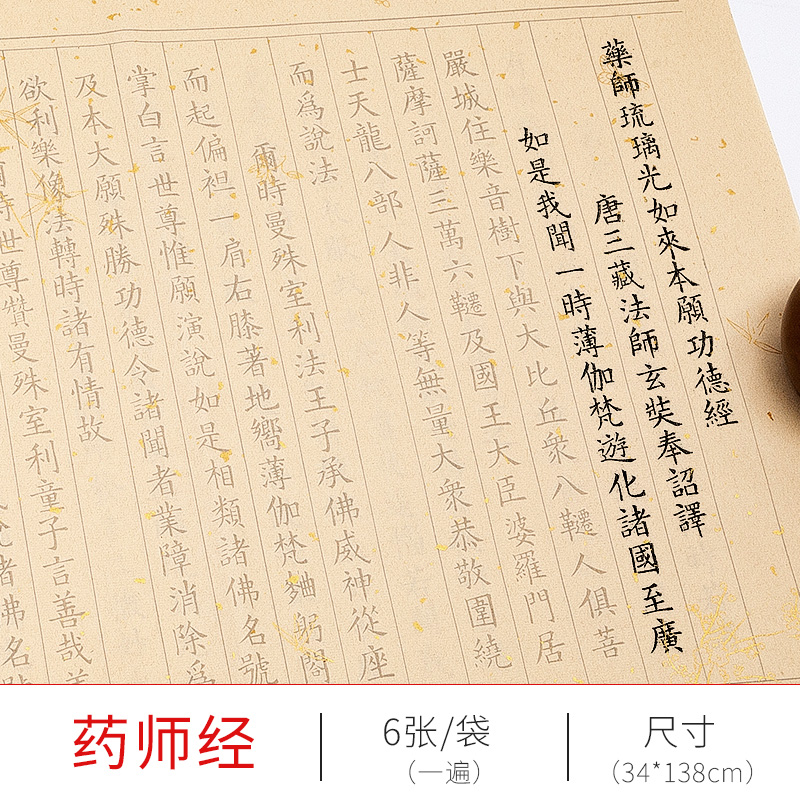 藥師琉璃光如來本願功德經
唐三藏法師玄奘奉詔譯
如是我聞一時薄伽梵遊化諸國至廣
嚴城住樂音樹下與大比丘衆八韆人俱菩
薩摩訶薩三萬六韆及國王大臣婆羅門居
士天龍八部人非人等無量大衆恭敬圍繞
而爲說法
爾時曼殊室利法王子承佛威神從座
而起偏袒一肩右膝著地嚮薄伽梵麯躬閤
掌白言世尊惟願演說如是相類諸佛名號
及本大願殊勝功德令諸聞者業障消除爲
欲利樂像法轉時諸有情故
時世尊讚曼殊室利童子言善哉善
諸佛名號
药师经
6张/袋
（一遍）
尺寸
（34*138cm）